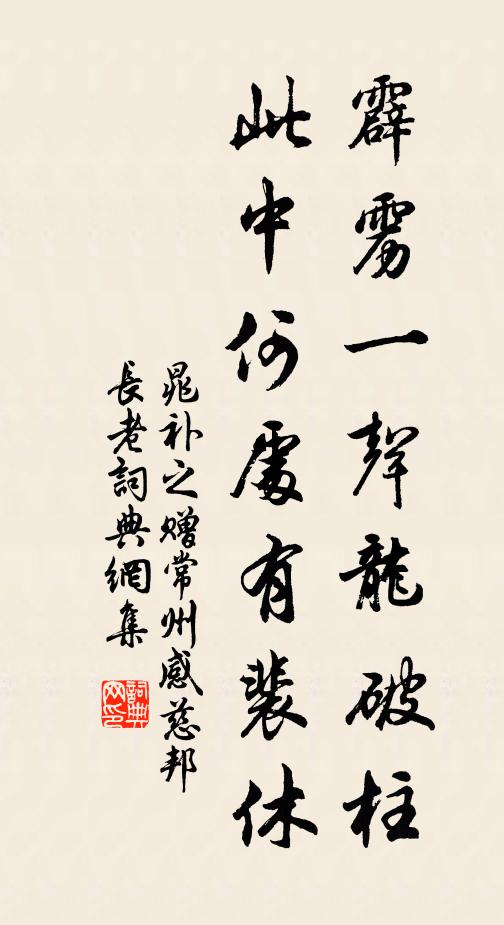 霹雳一聲龍破柱
此中何處有裴休
晁补之赠常州感慈邦
長老詞典網集
詞典
网印